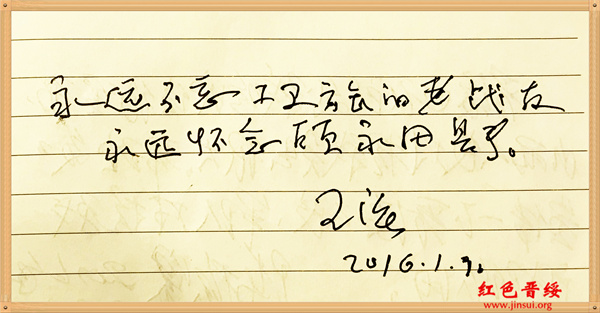 永远不忘工卫旅的老战友
永远怀念顾永田县长。
王
2016.1.
红色晋绥
www.jinsui.org